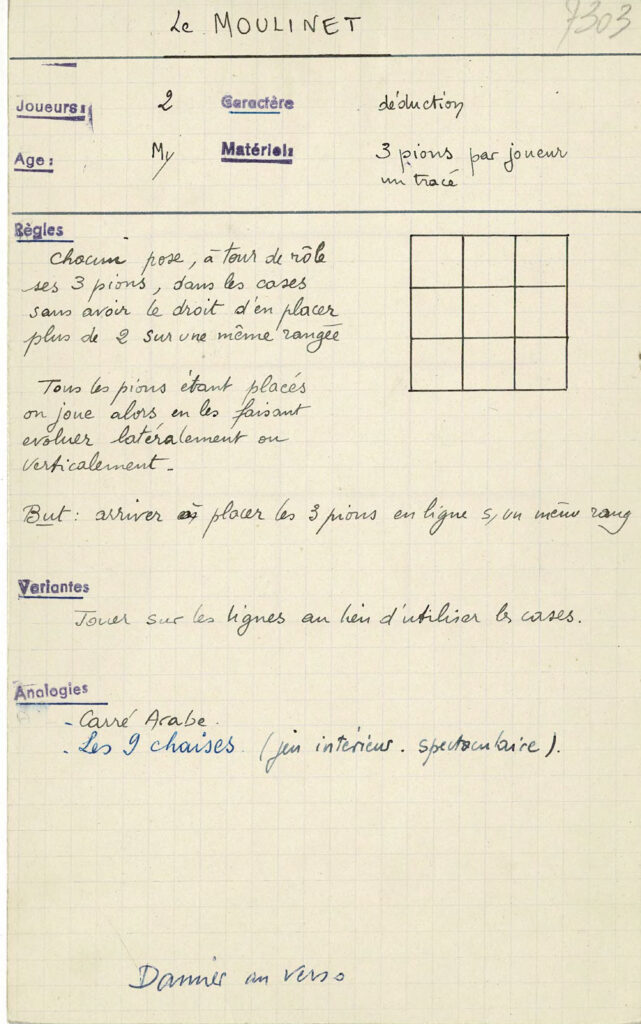 Le MOULINET
7303
Joueurs: 2 Caractère déduction
Age: My Matériel: 3 pions par joueur
un tracé
Règles
Chacun pose, à tour de rôle
ses 3 pions, dans les cases
sans avoir le droit d'en placer
plus de 2 sur une même rangée
Tous les pions étant placés
on joue alors en les faisant
evoluer latéralement ou
verticalement_
But: arriver à placer les 3 pions en ligne s/un même rang
Variantes
Jouer sur les lignes au lieu d'utiliser les cases.
Analogies
- Carré Arabe.
- Les 9 chaises (jeu intérieur. spectaculaire).
Damier au verso